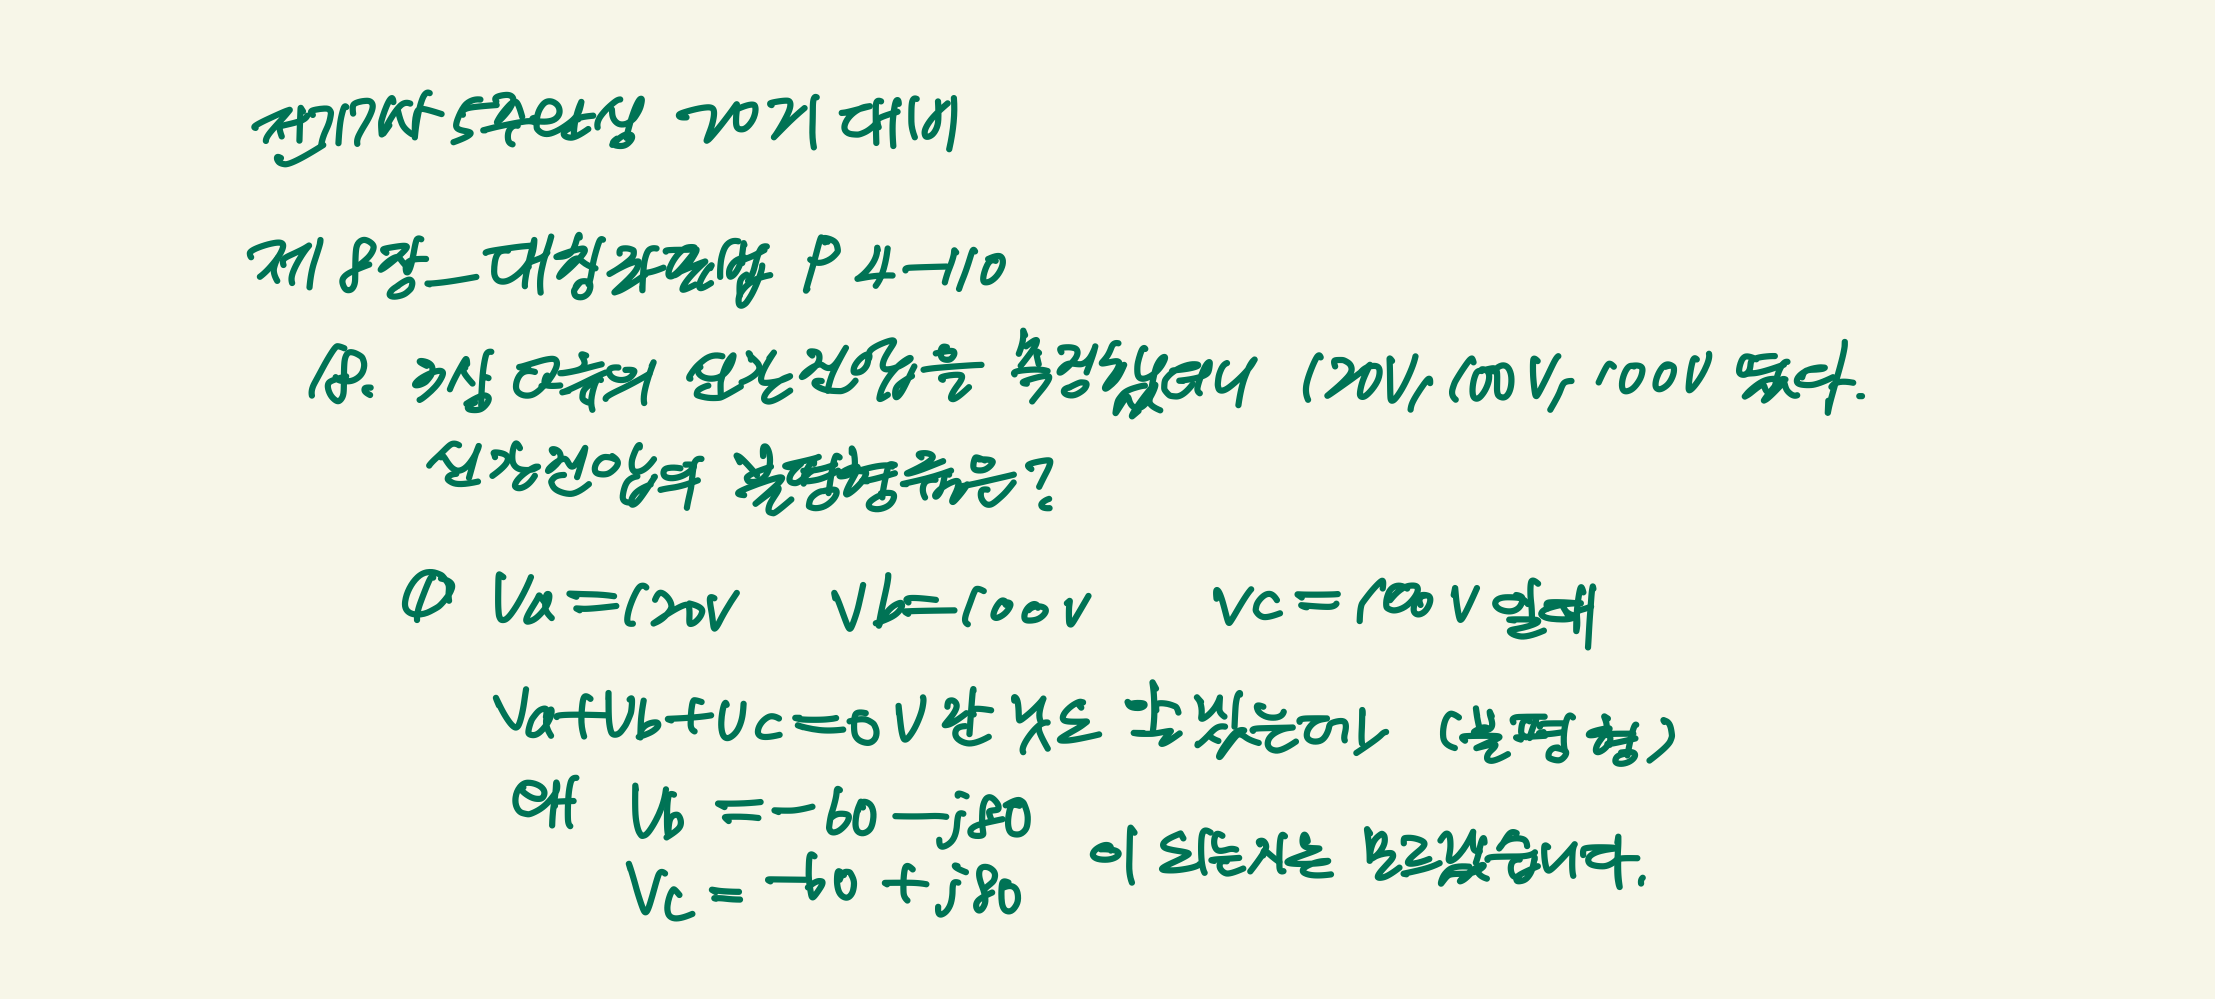 전기기사 단주완성 20기 대비
제 8장_대칭좌표법 P 4-110
Q. 3상 회로의 선간전압을 측정했더니 120V, 100V, 100V 였다.
선간전압의 불평형률은?
① Va=120V Vb=100V Vc=100V 일때
Va+Vb+Vc=0V 란 것도 알겠는데 (불평형)
왜 Vb =-60-j80
Vc = -60+j80 이 되는지는 모르겠습니다.